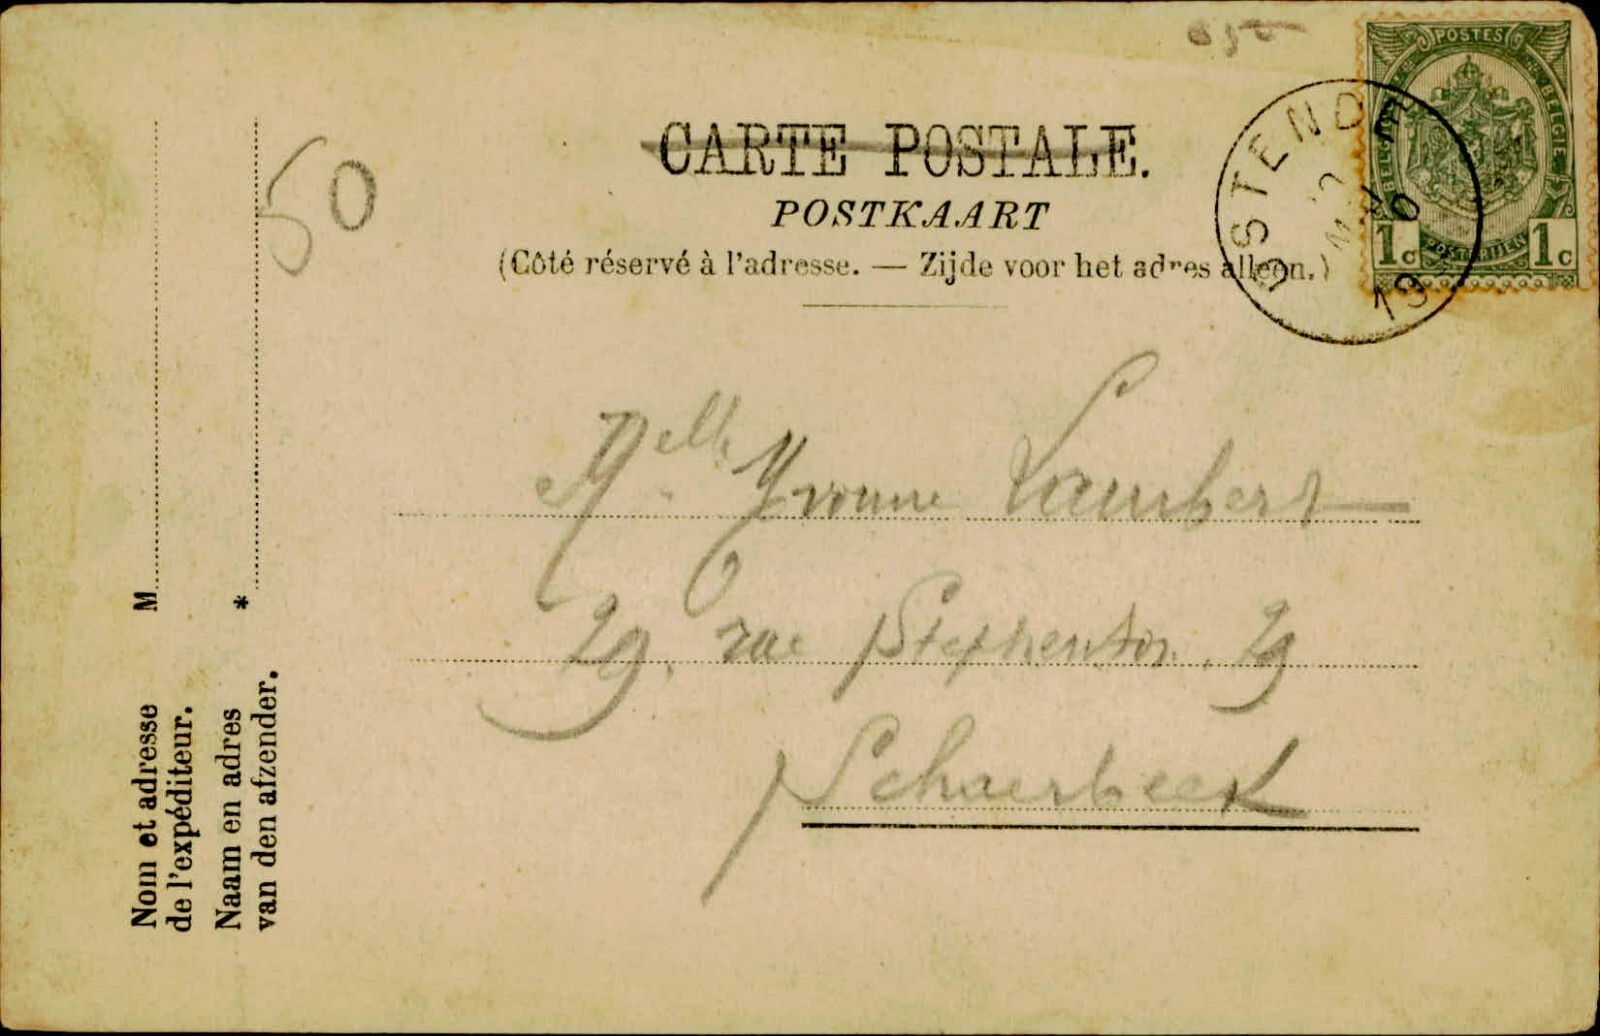 CARTE POSTALE.
POSTKAART
(Côté réservé à l'adresse. — Zijde voor het adres alleen.)
POSTES
BELGIQUE
BELGIE
POSTERIJEN
1c
1c
OSTENDE
50
Melle Yvonne Lambert
29, rue Stephenson, 29
Schaerbeek
Nom et adresse
de l'expéditeur.
M
Naam en adres
van den afzender.
*